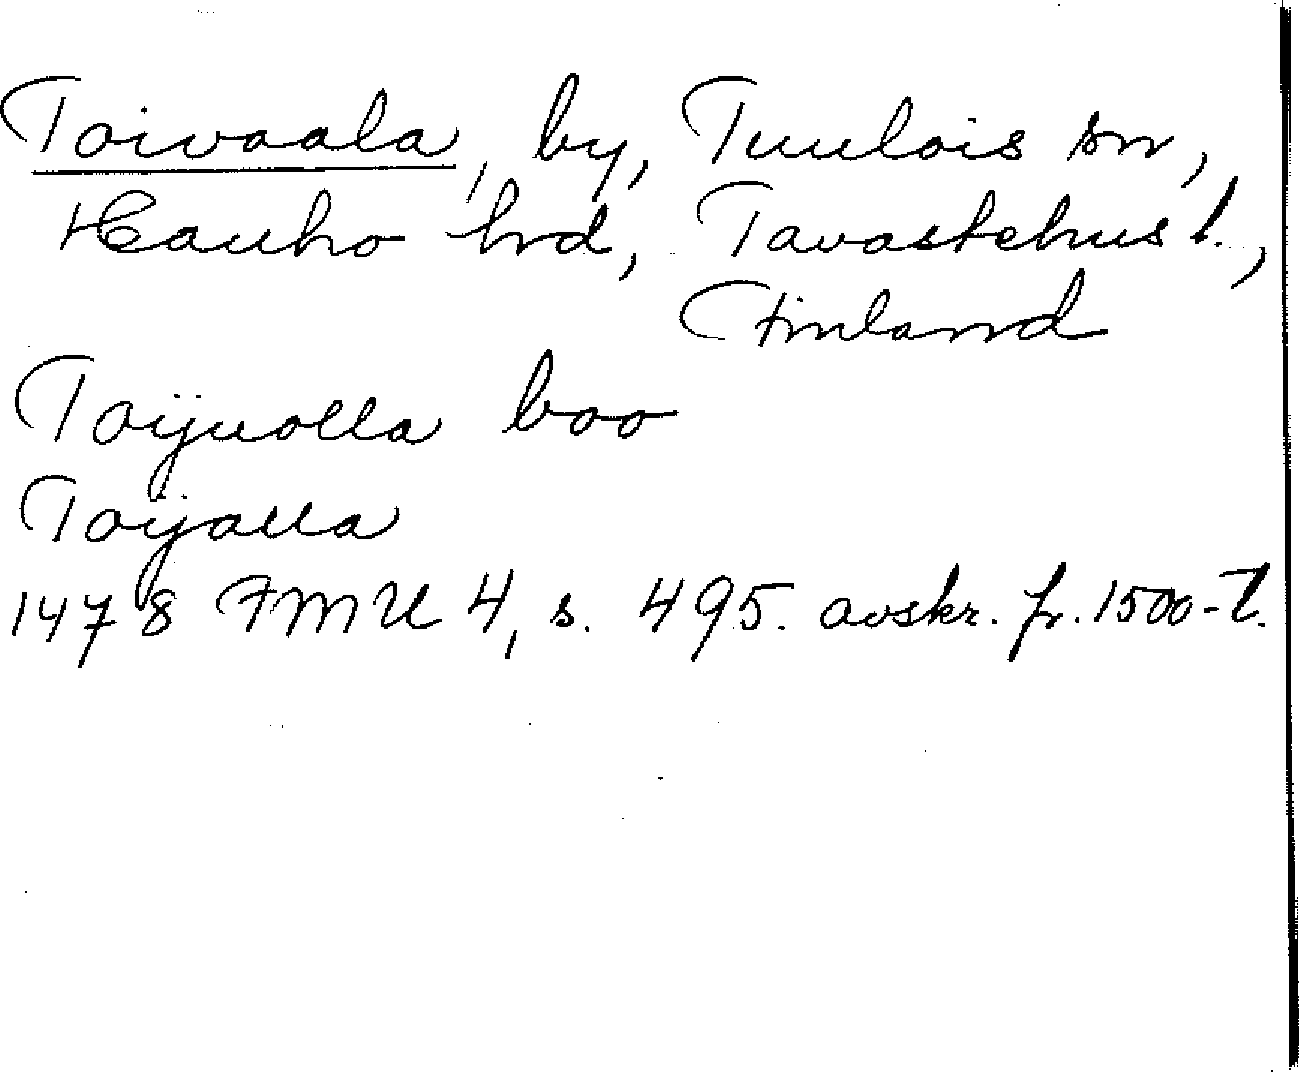 Toivaala, by, Tuulois sn,
Hauho hrd, Tavastehus l.,
Finland
Toijuolla boo
Toijalla
1478 FMU 4, s. 495. avskr. fr. 1500-t.